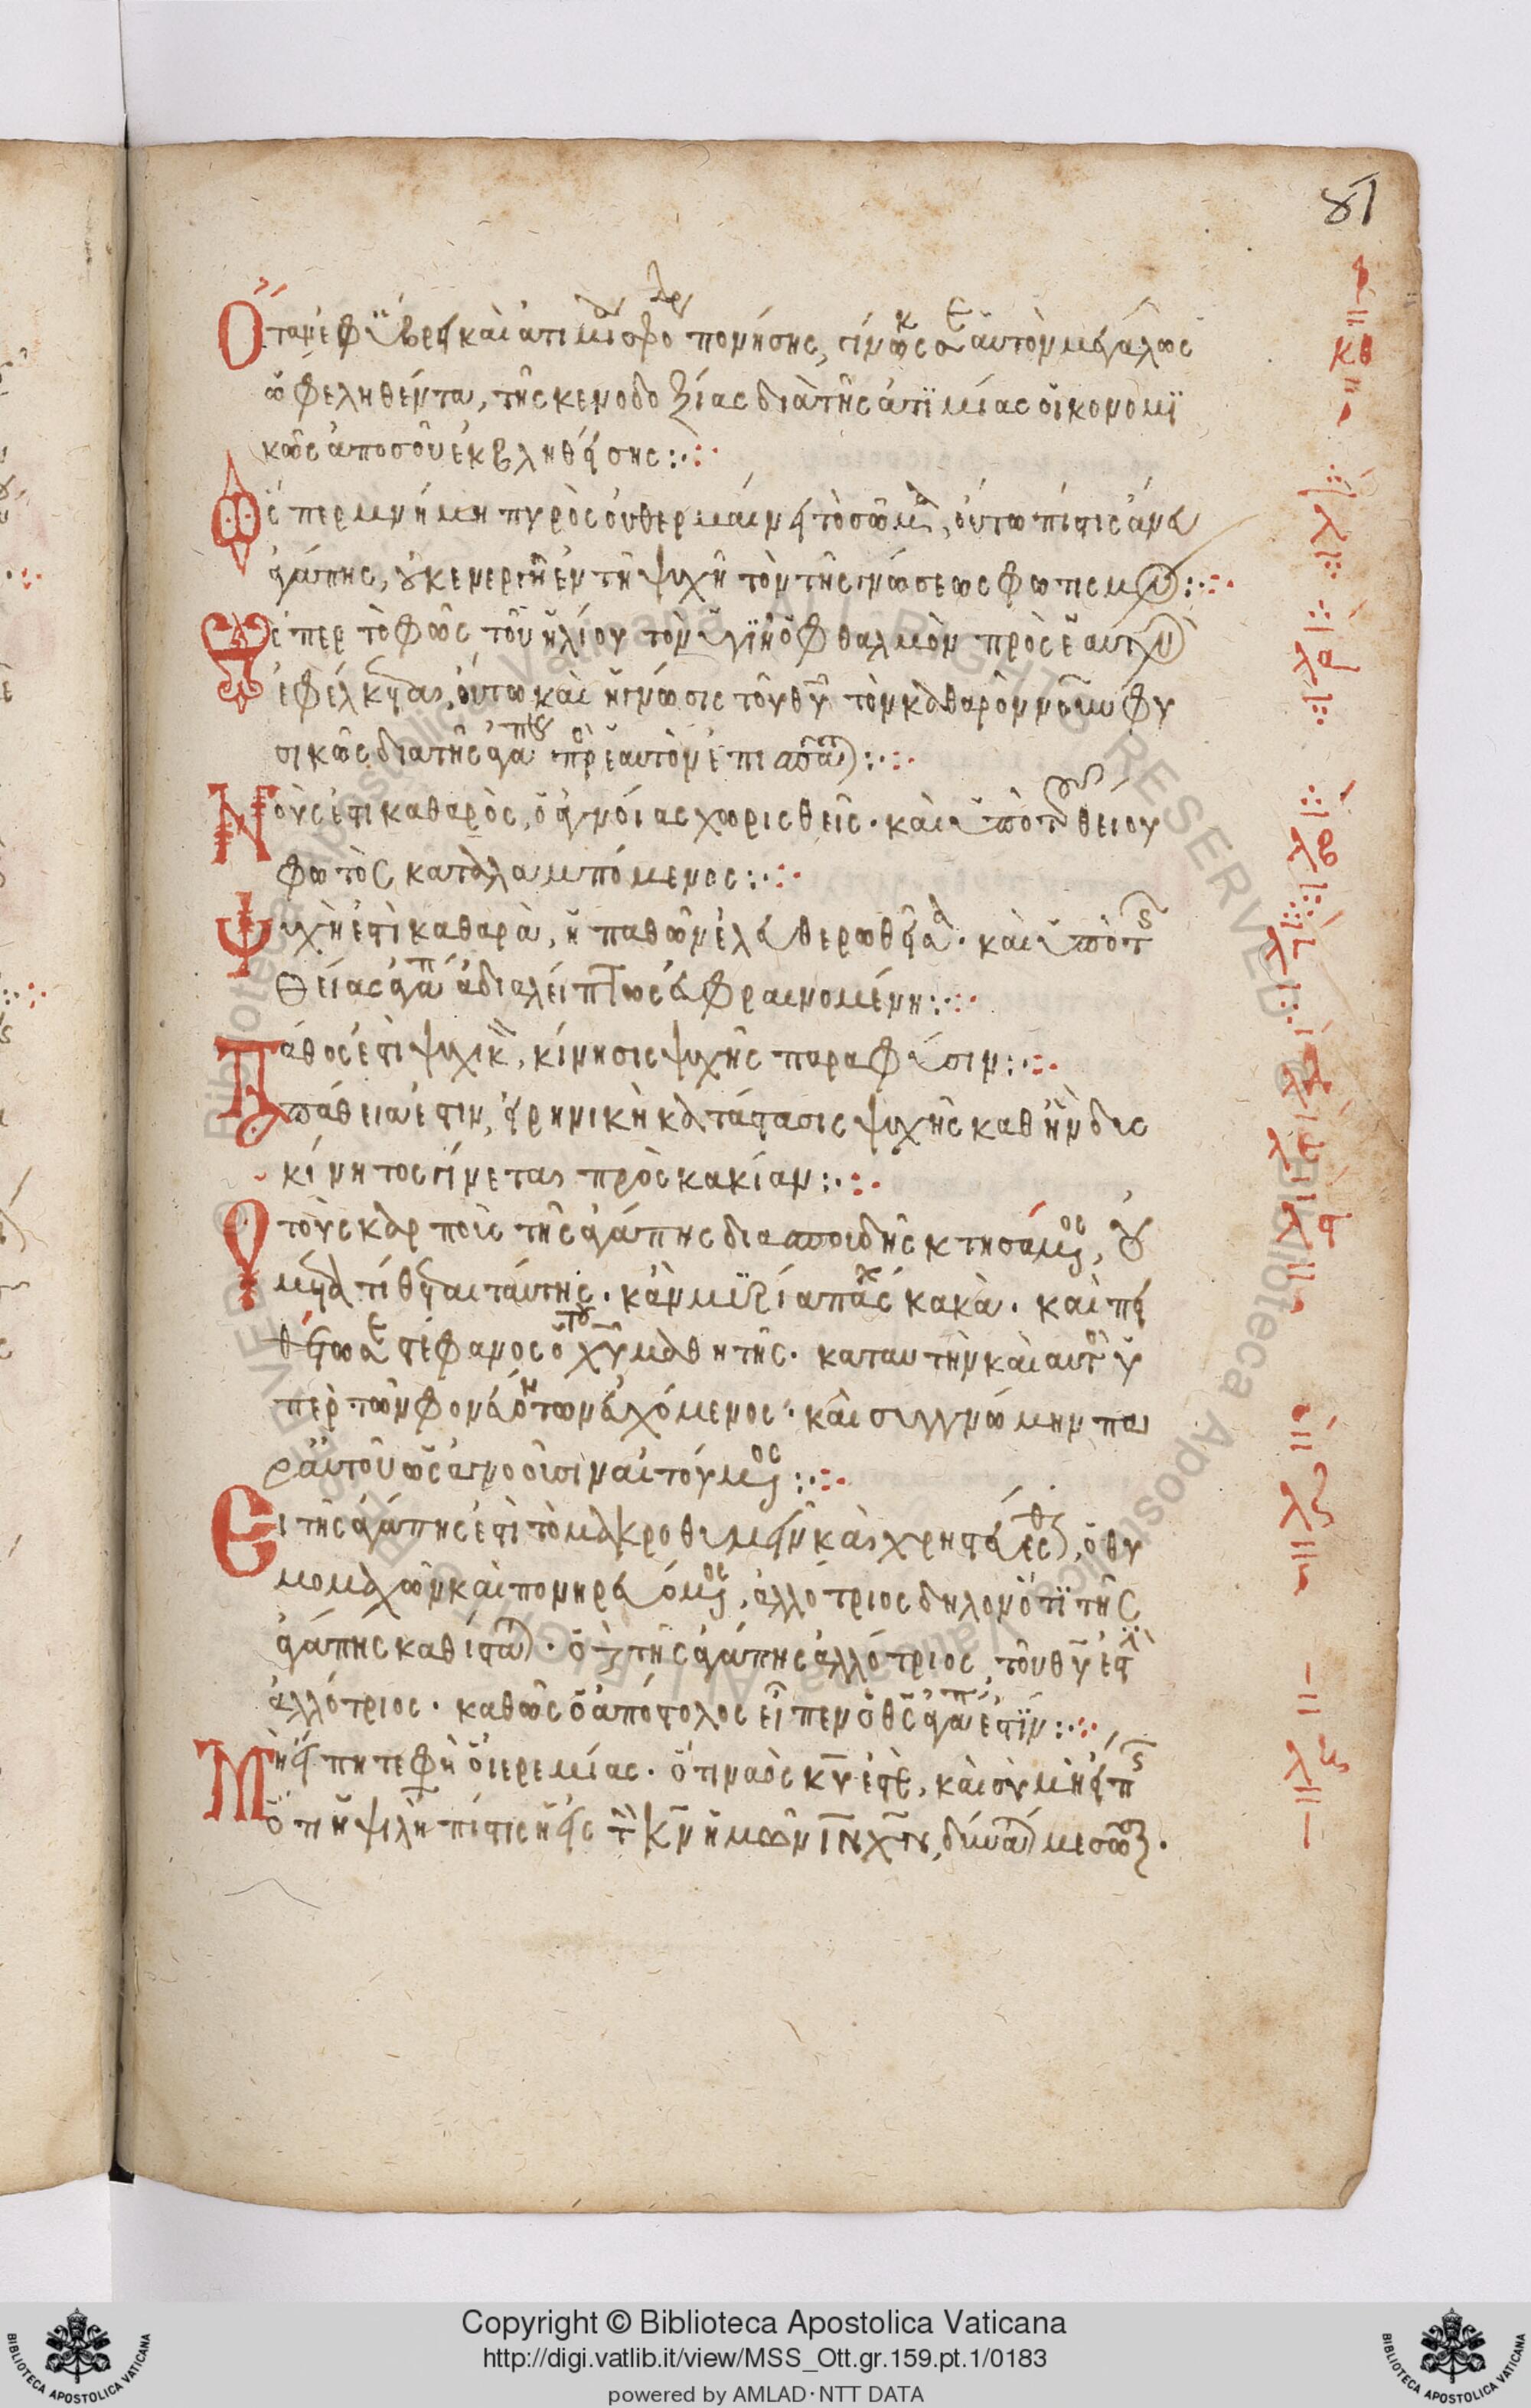 81
Ὅταν ἐφ ὕβρει καὶ ἀτιμία σφόδρα πονήσης, γίνωσκε σεαυτὸν μεγάλως
κθ
ὠφεληθέντα, τῆς κενοδοξίας διὰ τῆς ἀτϊμίας οἰκονομϊ
κῶς ἀπο σοῦ ἐκβληθείσης :·
Ὥσπερ μνήμη πυρὸς οὐ θερμαίνει τὸ σῶμα, οὕτω πίστις ἄνευ
λα
ἀγάπης, οὐκ ενεργεῖ ἐν τῆ ψυχῆ τὸν τῆς γνώσεως φωτισμόν :·
Ὥσπερ τὸ φῶς τοῦ ἡλίου τὸν ὑγιῆ ὀφθαλμὸν πρὸς ἑαυτὸν
ἐφέλκεται, οὕτω καὶ ἡ γνώσις τοῦ θῦ τὸν καθαρὸν νοῦν φυ
σικῶς δια τῆς ἀγάπης πρὸς ἑαυτὸν ἐπισπᾶται :·
Νοῦς ἐστι καθαρὸς, ὁ ἀγνοίας χωρισθεὶς · καὶ ὑπὸ τοῦ θείου
φωτὸς καταλαμπόμενος :·
Ψυχὴ ἐστὶ καθαρὰ, ἡ παθῶν ἐλευθερωθεῖσα · καὶ ὑπὸ τῆς
θείας ἀγάπης ἀδιαλείπτως εὐφραινομένη :·
Πάθος ἐστὶ ψεκτὸν, κίνησις ψυχῆς παρα φύσιν :·
Ἀπάθεια ἐστιν, εἰρηνικὴ κατάστασις ψυχῆς καθ ἣν δυς
κίνητος γίνεται πρὸς κακίαν :·
Ὁ τοὺς καρποὺς τῆς ἀγάπης δια σπουδῆς κτησάμενος, οὐ
μετατίθεται ταύτης · κἂν μϋρία πάσχει κακὰ · καὶ πει
θέτω σε στέφανος ὁ τοῦ χῦ μαθητὴς · κατ αυτὴν καὶ αυτὸς ὑ
περ τῶν φονευόντων εὐχόμενος · καὶ συγγνώμην πα
ρ αὐτοῦ ὡς ἀγνοοῦσιν αἰτούμενος :·
Εἰ τῆς ἀγάπης ἐστὶ τὸ μακροθυμεῖν καὶ χρηστεύεσθαι, ὁ θυ
μομαχῶν καὶ πονηρευόμενος, ἀλλότριος δηλονότϊ τῆς
ἀγάπης καθίσταται · ὁ δὲ τῆς ἀγάπης ἀλλότριος, τοῦ θῦ ἐστὶν
ἀλλότριος · καθὼς ὁ ἀπόστολος εἶπεν ὁ θς ἀγάπη ἐστϊν :·
Μὴ εἴπητε φησὶν ὁ ἱερεμίας · ὅτι ναὸς κῦ ἐστὲ, καὶ σὺ μὴ εἴπης
ὅτι ἡ ψιλὴ πίστις ἡ εἰς τὸν κν ἡμῶν ιν χν, δύναταί με σῶσαι ·
Copyright © Biblioteca Apostolica Vaticana
http://digi.vatlib.it/view/MSS_Ott.gr.159.pt.1/0183
powered by AMLAD·NTT DATA
BIBLIOTECA APOSTOLICA VATICANA
BIBLIOTECA APOSTOLICA VATICANA